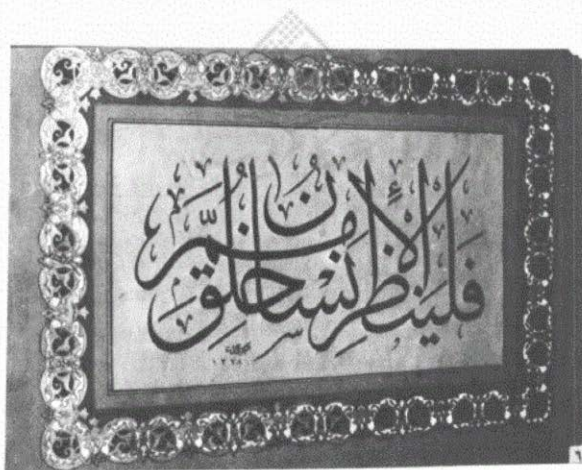 فَلْيَنظُرِ الْإِنسَانُ مِمَّ خُلِقَ
١٣٧٨